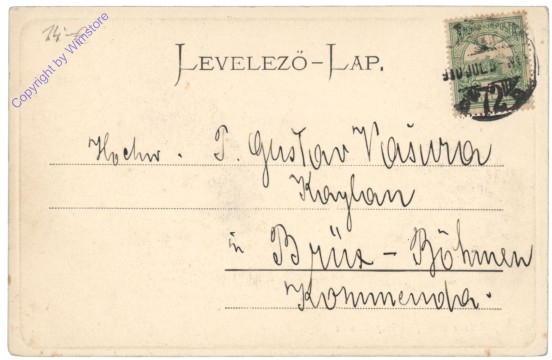 14.-
Copyright by Wimstore
LEVELEZŐ-LAP.
910 JUL.
72
Hochw. P. Gustav Vašura
Kaplan
in Brüx - Böhmen
Kommenda.